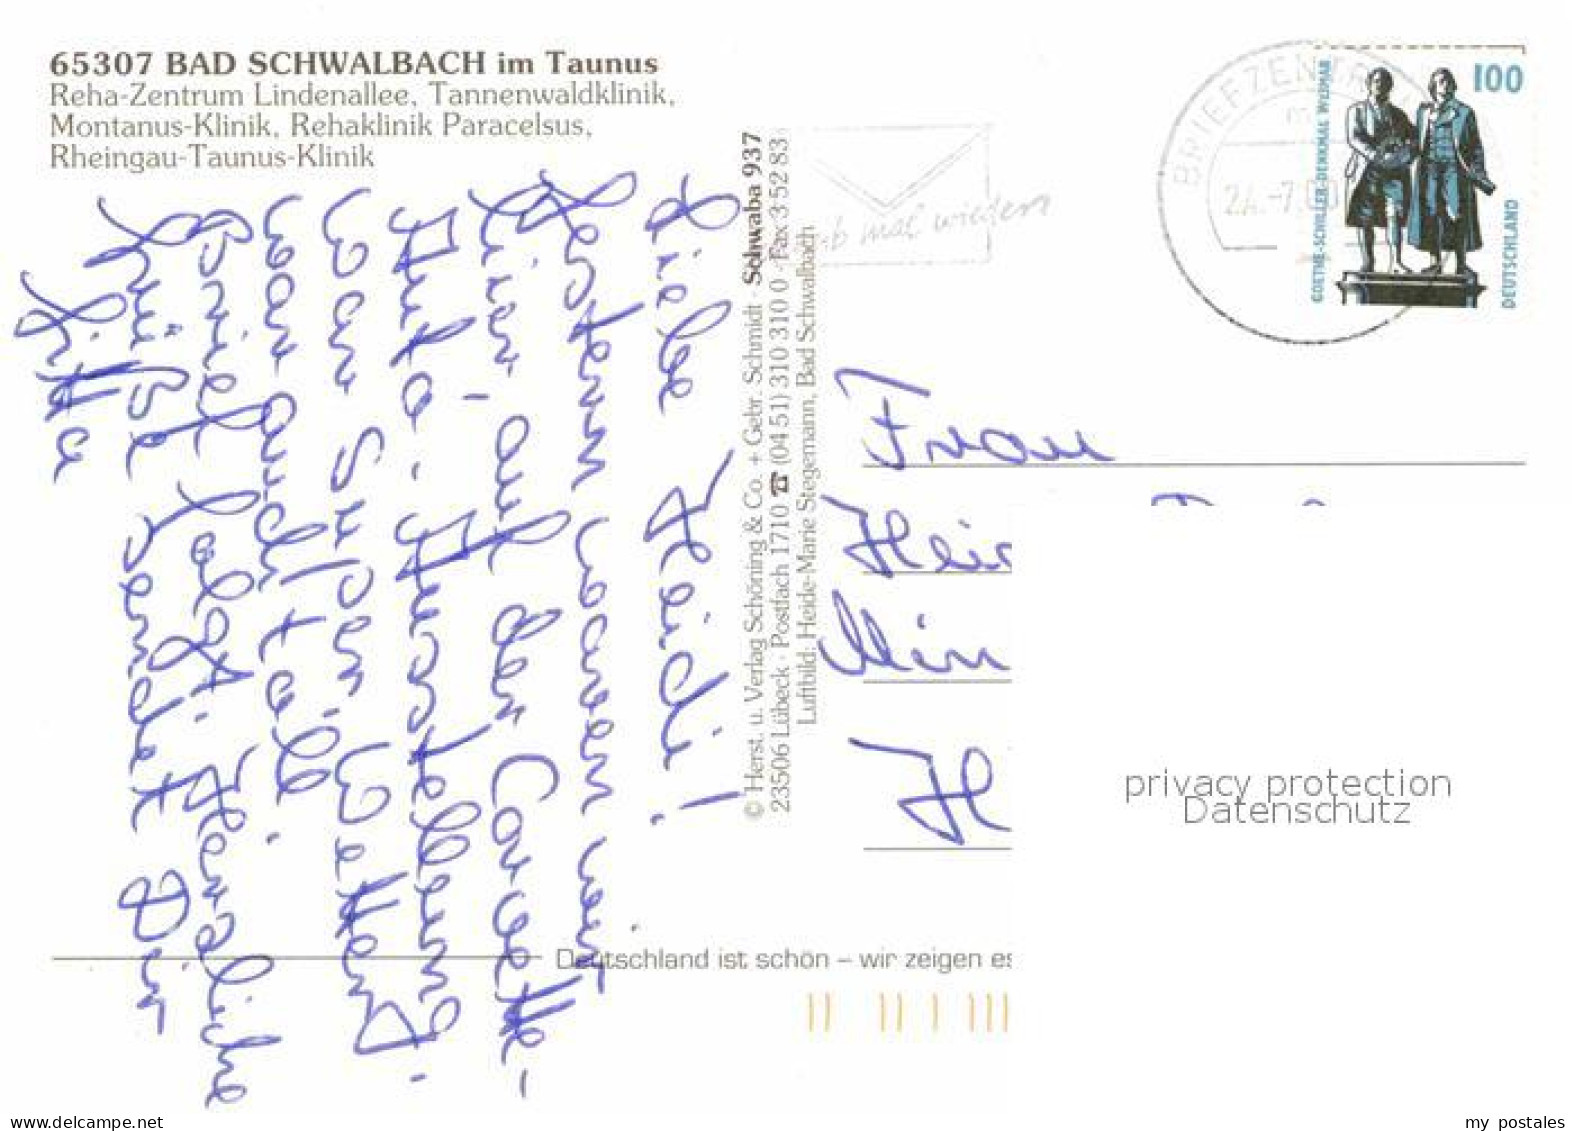 65307 BAD SCHWALBACH im Taunus
Reha-Zentrum Lindenallee, Tannenwaldklinik,
Montanus-Klinik, Rehaklinik Paracelsus,
Rheingau-Taunus-Klinik
Liebe Heidi!
Gestern waren wir
hier - auf der Corvette-
Auto-Ausstellung.
War super! Wetter
war auch toll.
Brief folgt. Herzliche
Grüße sendet Dir
Gitta
© Herst. u. Verlag Schöning & Co. + Gebr. Schmidt · Schwaba 937
23506 Lübeck · Postfach 1710 ☎ (04 51) 310 310 0 · Fax 3 52 83
Luftbild: Heide-Marie Stegemann, Bad Schwalbach
mal wieder
BRIEFZENTR
24.-7.00
100
GOETHE-SCHILLER-DENKMAL WEIMAR
DEUTSCHLAND
Frau
Hei
Min
H
privacy protection
Datenschutz
Deutschland ist schön – wir zeigen es
www.delcampe.net
my_postales